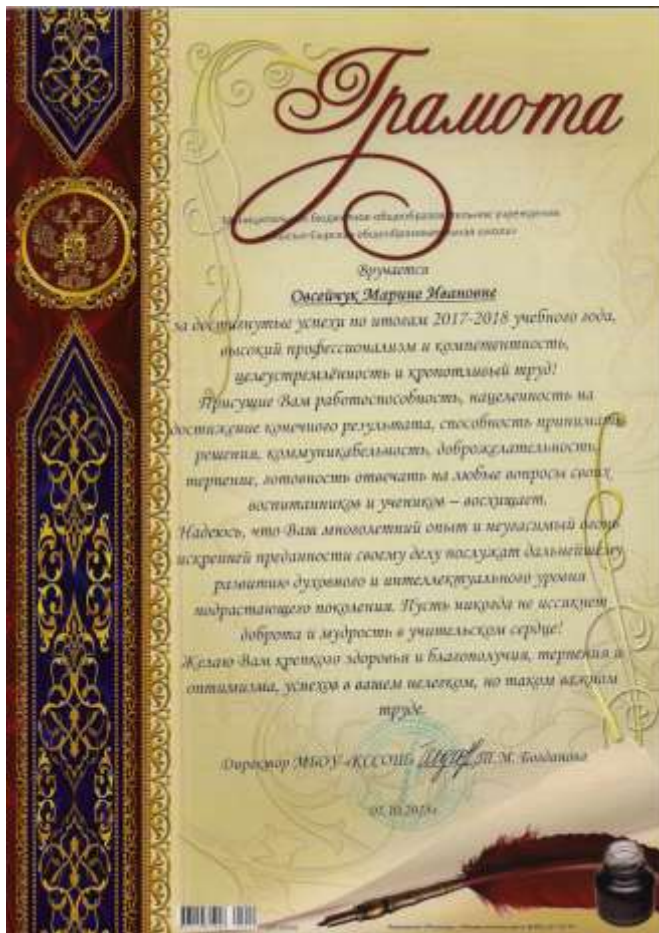 Грамота
Муниципальное бюджетное общеобразовательное учреждение
общеобразовательная школа»
Вручается
Овсейчук Марине Ивановне
за достигнутые успехи по итогам 2017-2018 учебного года,
высокий профессионализм и компетентность,
целеустремлённость и кропотливый труд!
Присущие Вам работоспособность, нацеленность на
достижение конечного результата, способность принимать
решения, коммуникабельность, доброжелательность,
терпение, готовность отвечать на любые вопросы своих
воспитанников и учеников – восхищает.
Надеюсь, что Ваш многолетний опыт и неугасимый огонь
искренней преданности своему делу послужат дальнейшему
развитию духовного и интеллектуального уровня
подрастающего поколения. Пусть никогда не иссякнет
доброта и мудрость в учительском сердце!
Желаю Вам крепкого здоровья и благополучия, терпения и
оптимизма, успехов в вашем нелегком, но таком важном
труде.
Директор МБОУ «КССОШ» Т.М. Богданова
01.10.2018г